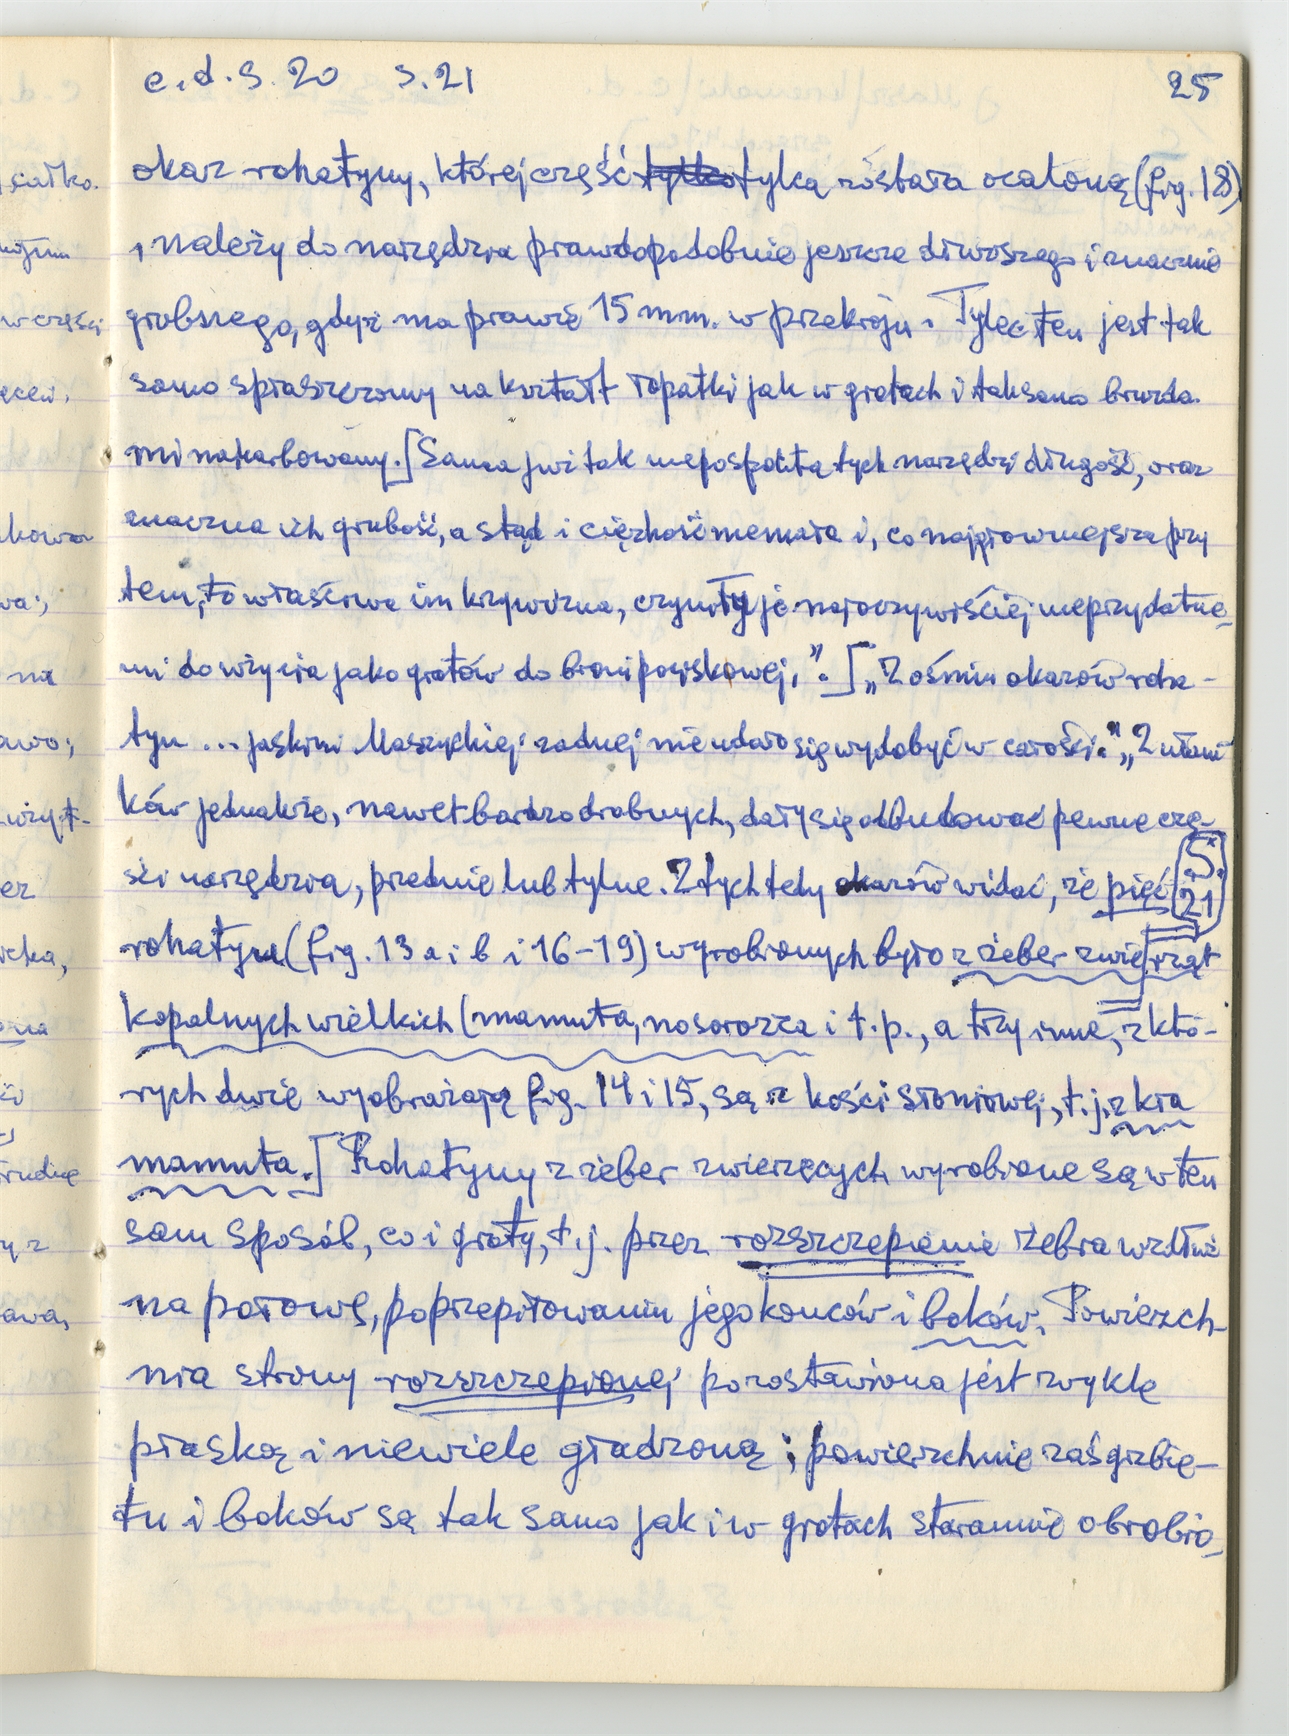 c.d.s. 20 s. 21 25
okaz rohatyny, której część tylko tylką została ocaloną (fig. 18)
, należy do narzędzia prawdopodobnie jeszcze dłuższego i znacznie
grubszego, gdyż ma prawie 15 mm. w przekroju. Tylec ten jest tak
samo spłaszczony na kształt łopatki jak w grotach i tak samo bruzda-
mi nakarbowany.] Sama już tak niepospolita tych narzędzi długość, oraz
znaczna ich grubość, a stąd i ciężkość niemała i, co najgłówniejsza przy
tem, ta właściwa im krzywizna, czyniły je najoczywiściej nieprzydatne-
mi do użycia jako grotów do broni pociskowej,". ] „Z ośmiu okazów roha-
tyn ... jaskini Maszyckiej żadnej nie udało się wydobyć w całości." „Z ułam
ków jednakże, nawet bardzo drobnych, dały się odbudować pewne czę-
ści narzędzia, przednie lub tylne. Z tych tedy okazów widać, że pięć
S. 21
rohatyn (fig. 13 a i b i 16-19) wyrobionych było z żeber zwierząt
kopalnych wielkich (mamuta, nosorożca i t.p., a trzy inne, z któ-
rych dwie wyobrażają fig. 14 i 15, są z kości słoniowej, t.j. z kła
mamuta.] Rohatyny z żeber zwierzęcych wyrobione są w ten
sam sposób, co i groty, t.j. przez rozszczepienie żebra wzdłuż
na połowę, poprzepiłowaniu jego końców i boków. Powierzch-
nia strony rozszczepionej pozostawiona jest zwykle
płaską i niewiele gładzoną; powierzchnie zaś grzbie-
tu i boków są tak samo jak i w grotach starannie obrobio-